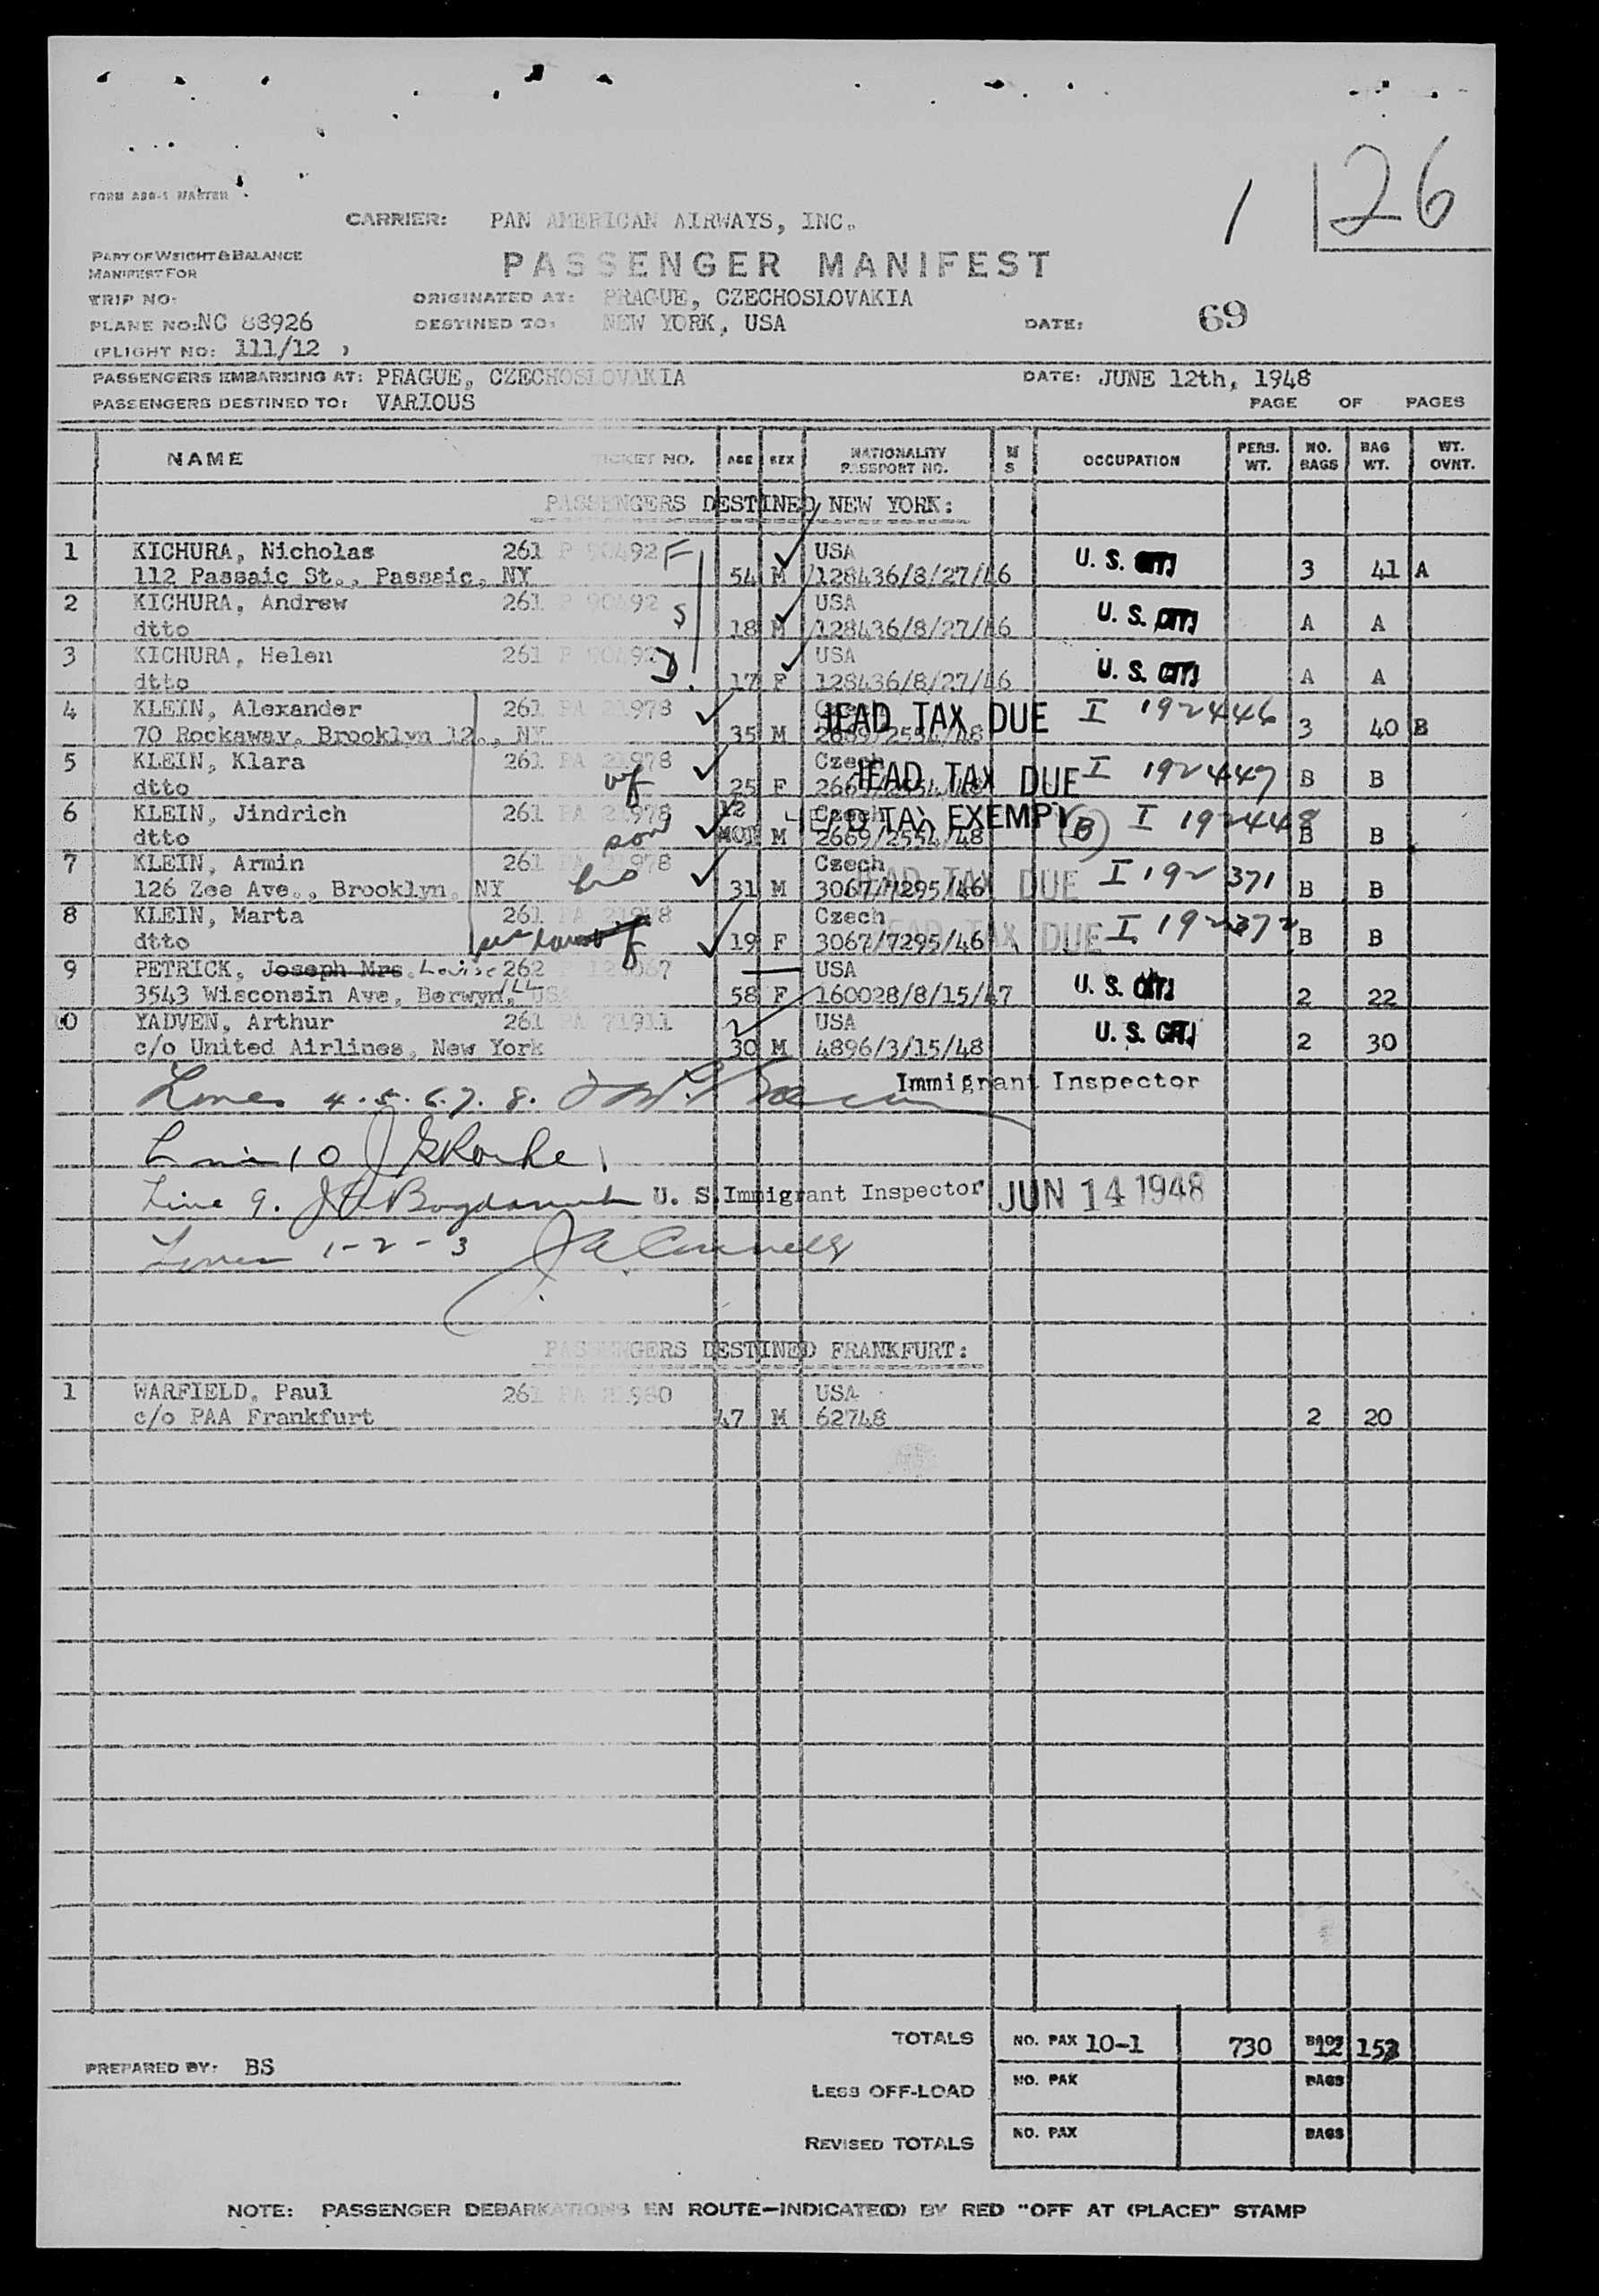 1 | 26
FORM
CARRIER: PAN AMERICAN AIRWAYS, INC.
PART OF WEIGHT & BALANCE
MANIFEST FOR
PASSENGER MANIFEST
TRIP NO: ORIGINATED AT: PRAGUE, CZECHOSLOVAKIA
PLANE NO: NC 88926 DESTINED TO: NEW YORK, USA DATE: 69
(FLIGHT NO: 111/12 )
PASSENGERS EMBARKING AT: PRAGUE, CZECHOSLOVAKIA DATE: JUNE 12th, 1948
PASSENGERS DESTINED TO: VARIOUS PAGE OF PAGES
NAME TICKET NO. AGE SEX NATIONALITY PASSPORT NO. M S OCCUPATION PERS. WT. NO. BAGS BAG WT. WT. OVNT.
PASSENGERS DESTINED NEW YORK:
1 KICHURA, Nicholas 261 P 90492 F USA U. S. CIT.
112 Passaic St., Passaic, NY 54 M 128436/8/27/46 3 41 A
2 KICHURA, Andrew 261 P 90492 S USA U. S. CIT.
dtto 18 M 128436/8/27/46 A A
3 KICHURA, Helen 261 P D. USA U. S. CIT.
dtto 17 F 128436/8/27/46 A A
4 KLEIN, Alexander 261 PA 21978 HEAD TAX DUE I 192446
70 Rockaway, Brooklyn 12., NY 35 M 2669/2554/48 3 40 B
5 KLEIN, Klara 261 PA 21978 wf Czech HEAD TAX DUE I 192447
dtto 25 F 2669/2554/48 B B
6 KLEIN, Jindrich 261 PA 21978 son 12 Czech HEAD TAX EXEMPT (B) I 192448
dtto MOT M 2669/2554/48 B B
7 KLEIN, Armin 261 PA 21978 bro Czech HEAD TAX DUE I 192371
126 Zee Ave., Brooklyn, NY 31 M 3067/7295/46 B B
8 KLEIN, Marta 261 PA 21978 Czech HEAD TAX DUE I 192372
dtto 19 F 3067/7295/46 B B
9 PETRICK, Joseph Mrs. Louise 262 USA U. S. CIT.
3543 Wisconsin Ave, Berwyn, ILL USA 58 F 160028/8/15/47 2 22
10 YADVEN, Arthur 261 PA 71911 USA U. S. CIT.
c/o United Airlines, New York 30 M 4896/3/15/48 2 30
Lines 4. 5. 6. 7. 8. Immigrant Inspector
Line 10
Line 9. U. S. Immigrant Inspector JUN 14 1948
Lines 1-2-3
PASSENGERS DESTINED FRANKFURT:
1 WARFIELD, Paul 261 PA USA
c/o PAA Frankfurt 47 M 62748 2 20
TOTALS NO. PAX 10-1 730 BAGS 12 153
PREPARED BY: BS
LESS OFF-LOAD NO. PAX BAGS
REVISED TOTALS NO. PAX BAGS
NOTE: PASSENGER DEBARKATIONS EN ROUTE—INDICATE(D) BY RED "OFF AT (PLACE)" STAMP